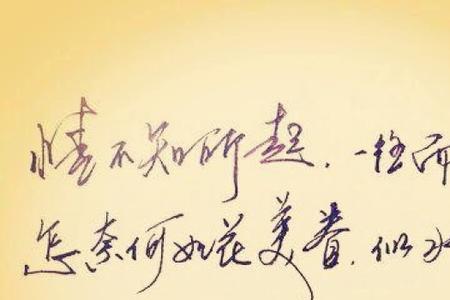 情不知所起.一往而
怎奈何如花美眷.似水